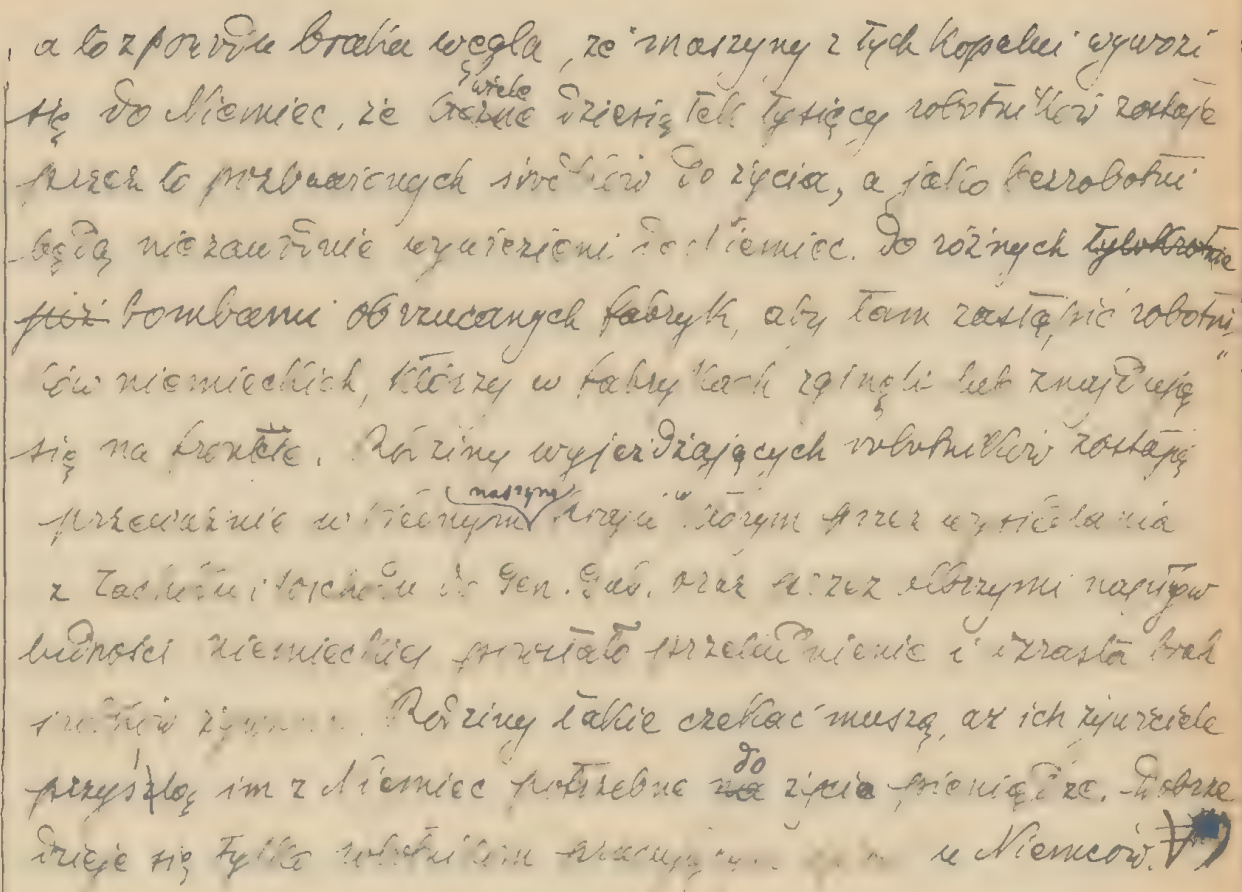 a to z powodu braku węgla, że maszyny z tych kopalni wywozi
się do Niemiec, że wiele dziesiątek tysięcy robotników zostaje
przez to pozbawionych środków do życia, a jako bezrobotni
będą niezawodnie wywiezieni do Niemiec. do różnych tylokrotnie
już bombami obrzucanych fabryk, aby tam zastąpić robotni
ków niemieckich, którzy w fabrykach zginęli lub znajdują
się na froncie. Rodziny wyjezdżających robotników zostają
przeważnie w biednym naszym kraju w którym przez wysiedlania
z zachodu i wschodu do Gen. Gub. oraz przez olbrzymi napływ
ludności niemieckiej powstało przeludnienie i wzrasta brak
środków Rodziny takie czekać muszą, aż ich żywiciele
przyszlą im z Niemiec potrzebne na do życia pieniądze. Dobrze
dzieje się tylko robotnikom pracującym u Niemców.